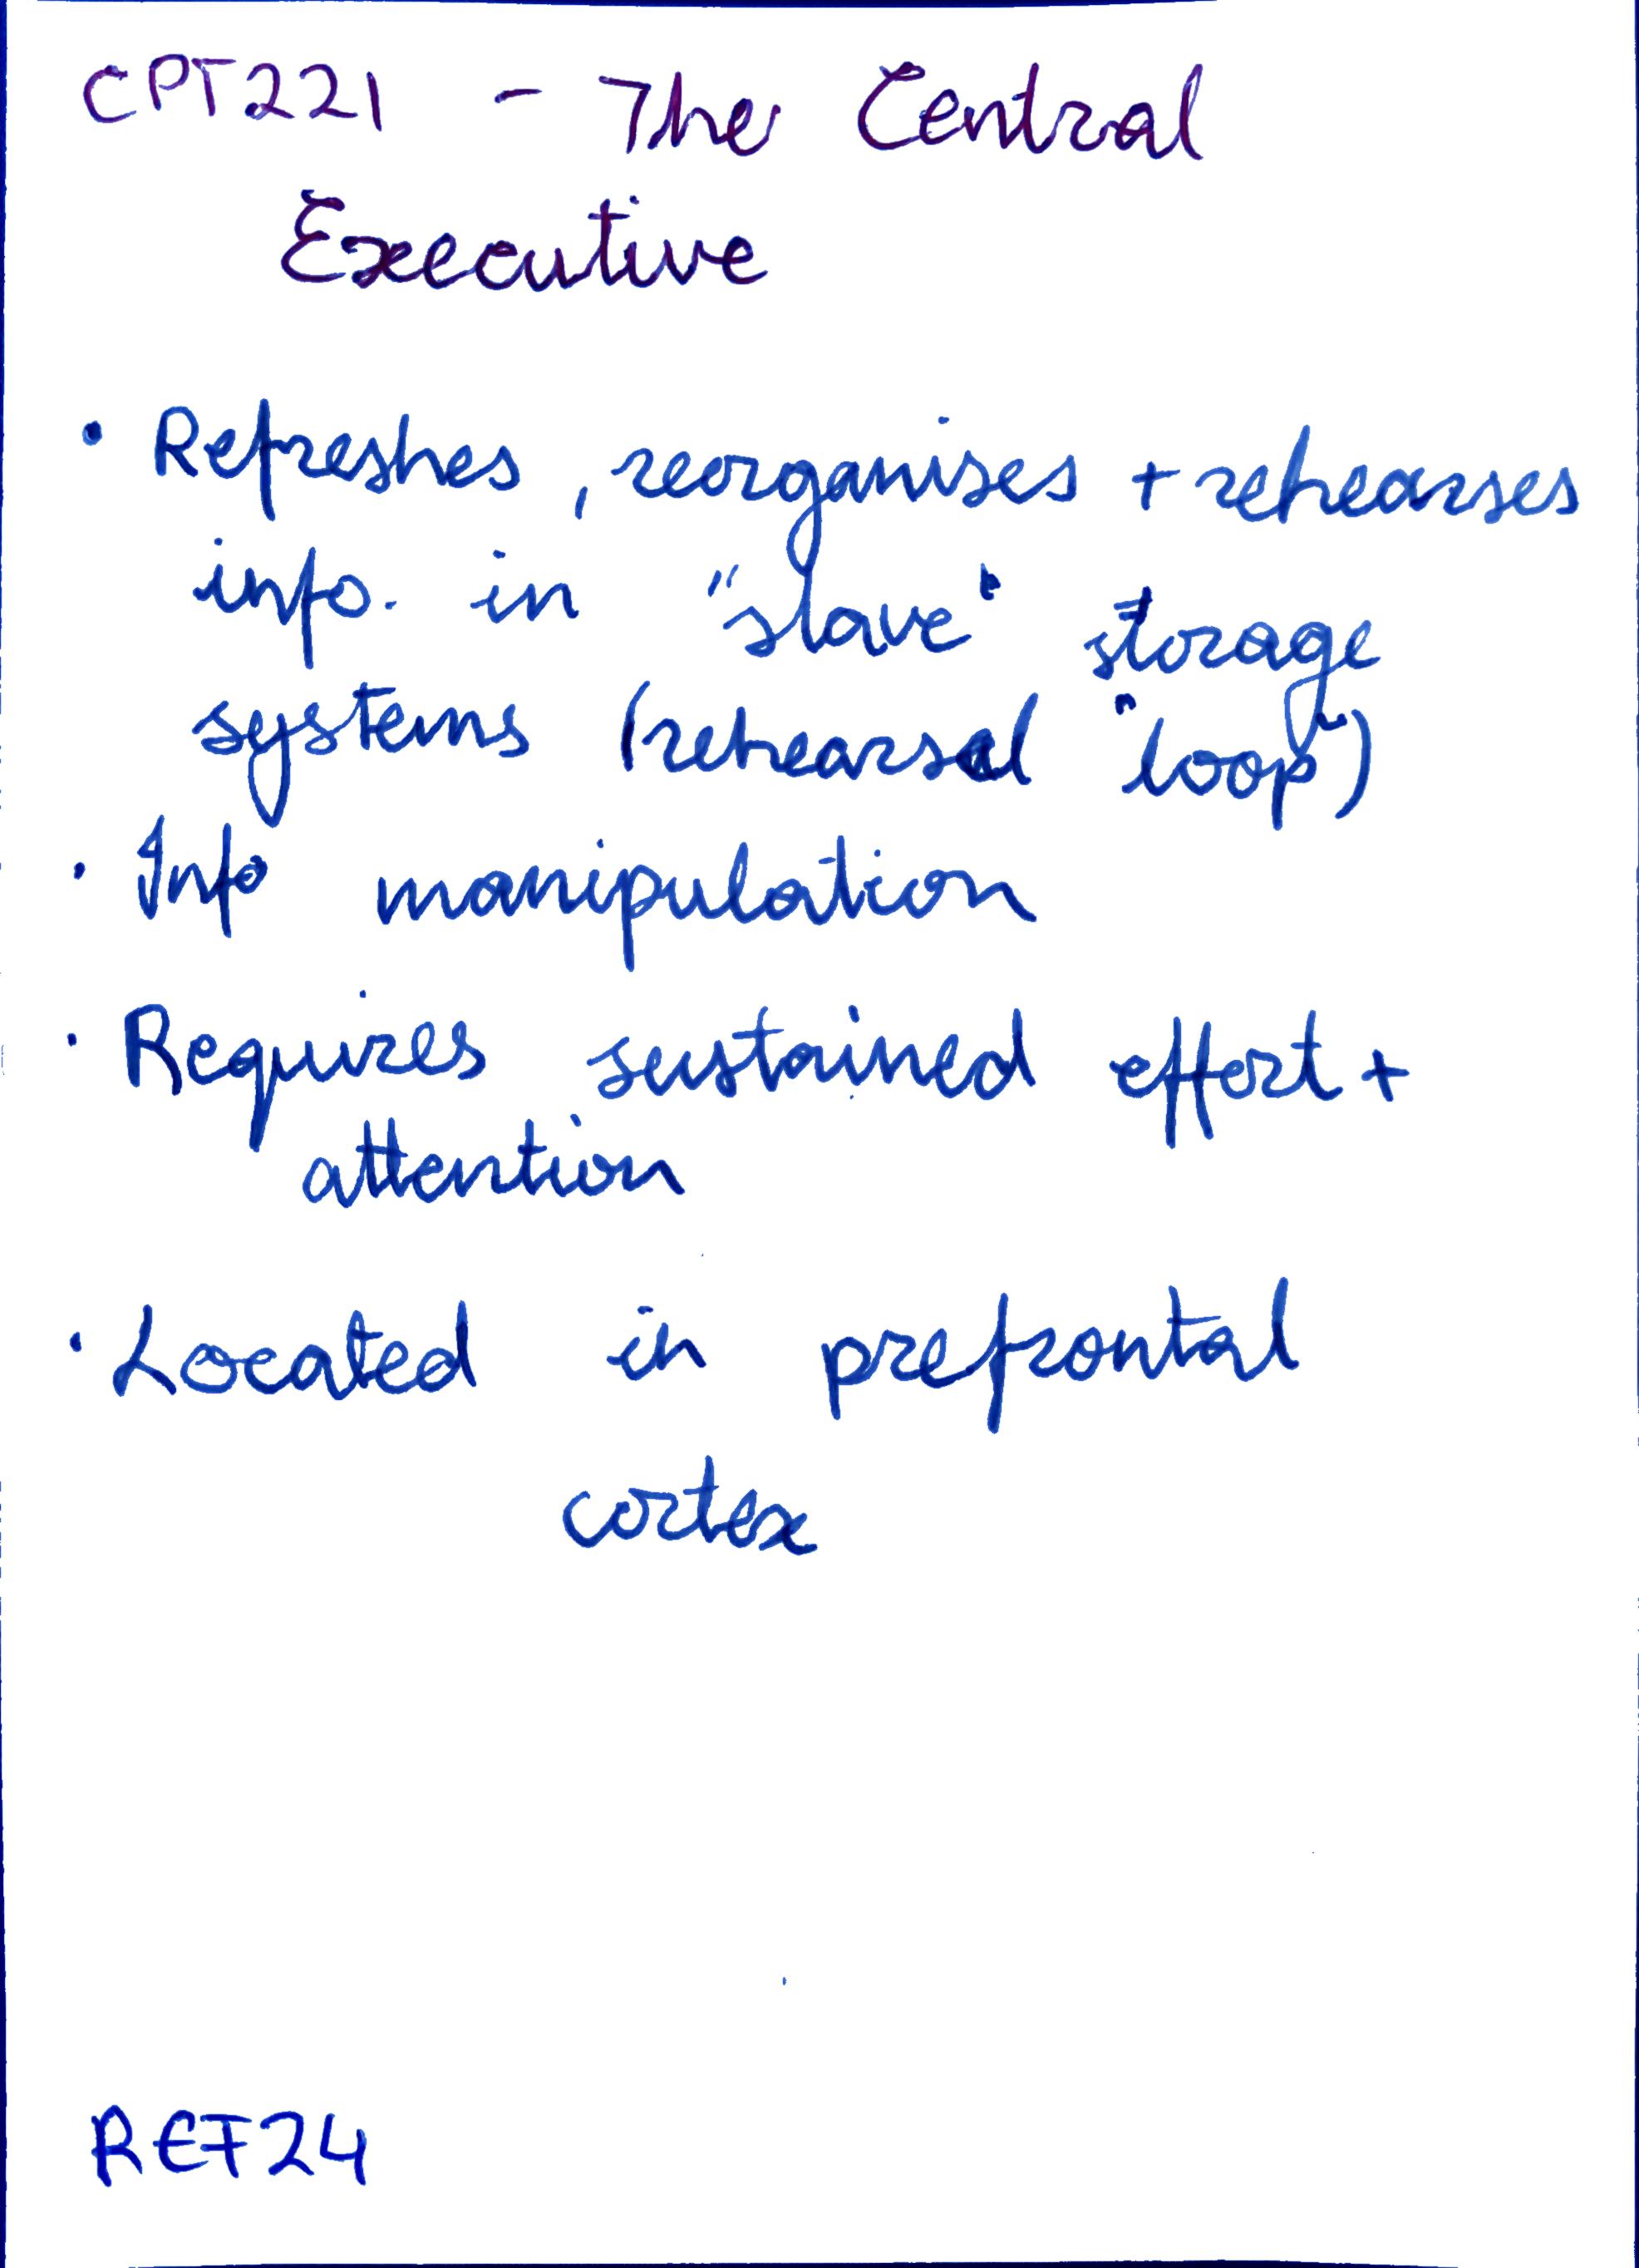 CPT221 - The Central
Executive
• Refreshes, reorganises + rehearses
info. in "slave" storage
systems (rehearsal "loop")
• Info manipulation
• Requires sustained effort +
attention
• Located in prefrontal
cortex
REF24